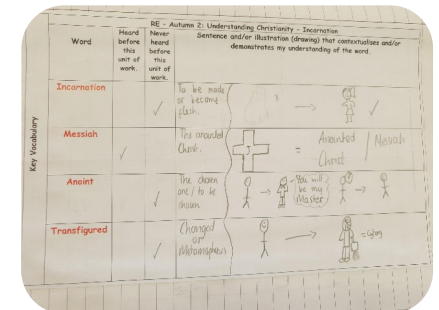 RE - Autumn 2: Understanding Christianity - Incarnation
Key Vocabulary
Word
Heard
before
this
unit of
work.
Never
heard
before
this
unit of
work.
Sentence and/or illustration (drawing) that contextualises and/or
demonstrates my understanding of the word.
Incarnation
To be made
or become
flesh.
Messiah
The anointed
Christ.
J
= Anointed
Christ
Messiah
Anoint
The chosen
one / to be
chosen
You will
be my
Master
Transfigured
Changed
or